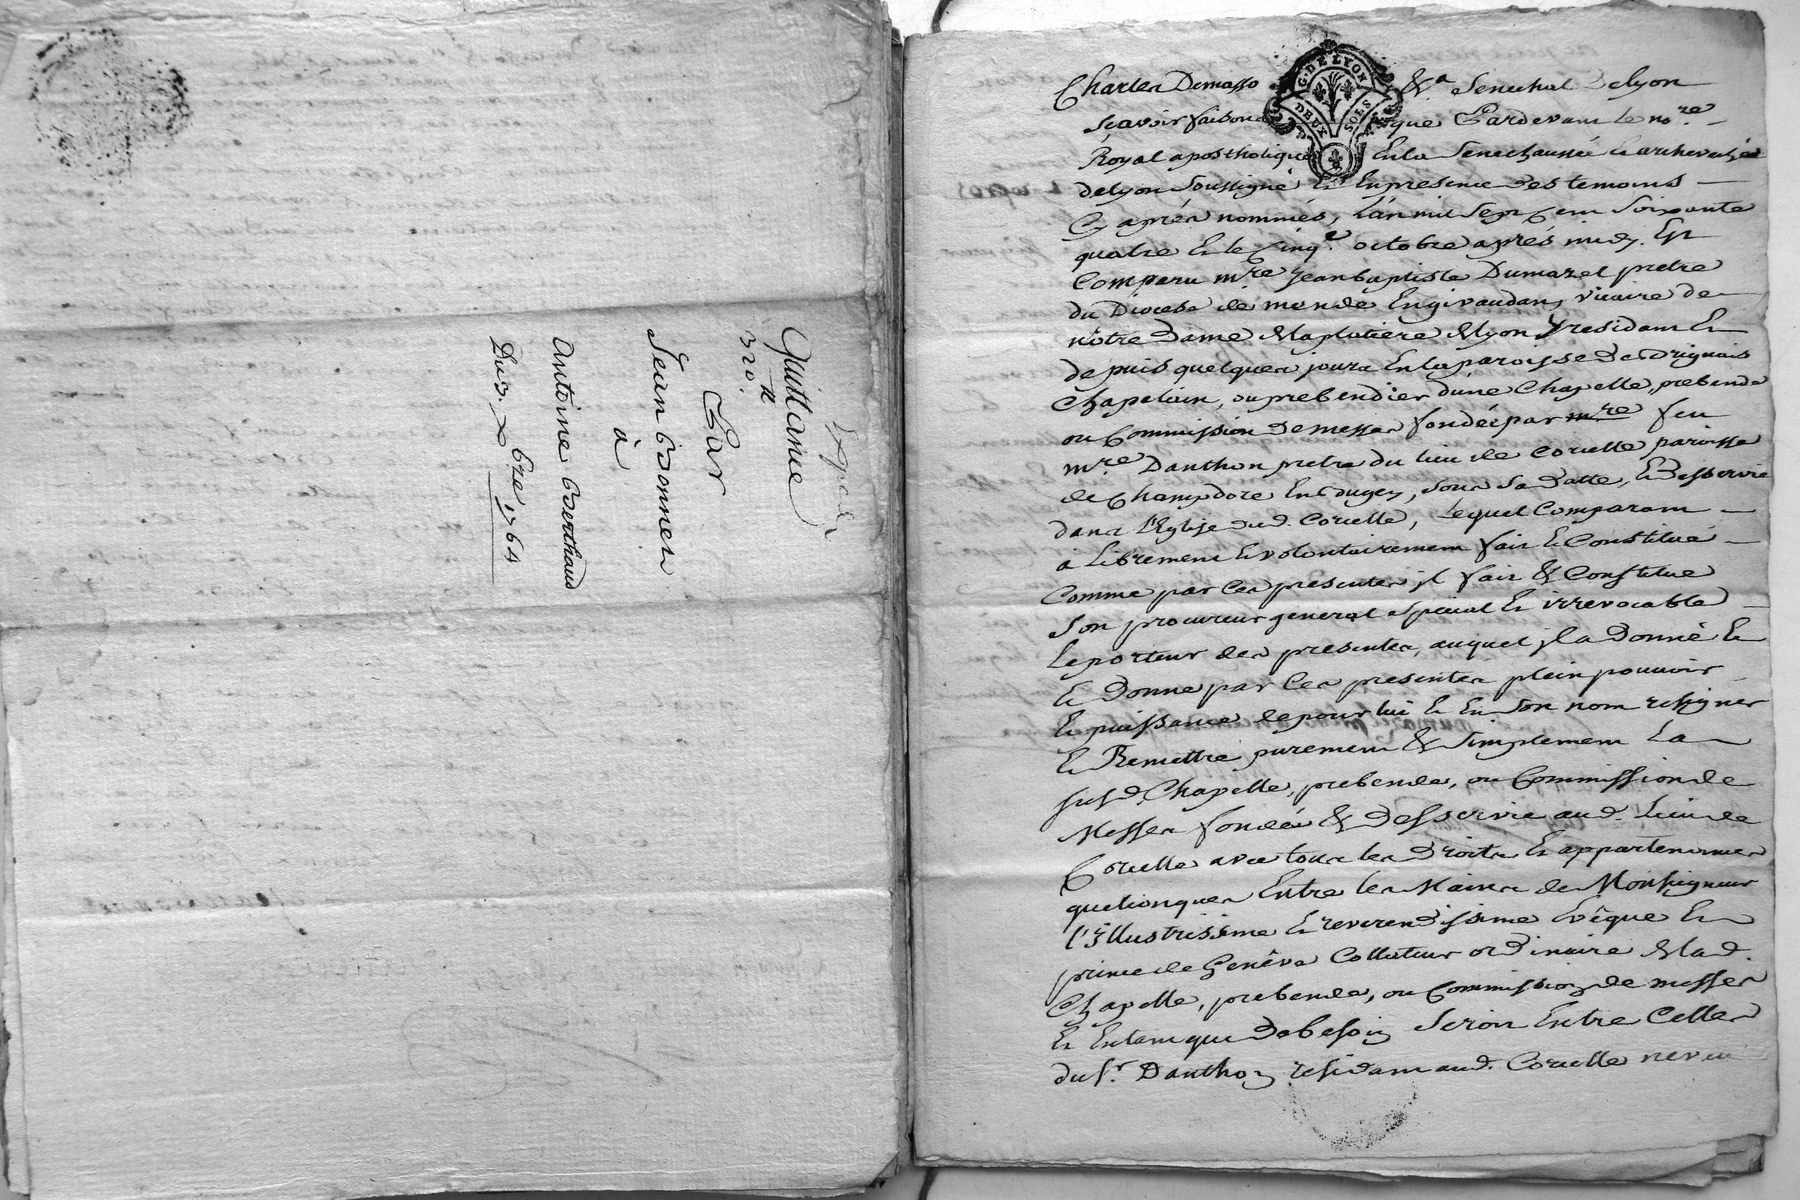 Expedié
Quittance
320.ᵗᵗ
Par
Jean Bonnet
à
Antoine Berthaud
Du 3. 8bre 1764
G. DE LYON
DEUX SOLS
Charles Demasso &ª Senechal Delyon
scavoir faisons que Pardevant le no.re
Royal apostholique En la Senechaussée & archeveché
delyon soussigné & En presence des temoins
Cy aprés nommés, L'an mil Sept Cent Soixante
quatre & le Cinq.e octobre aprés midy. Est
Comparu m.re Jean baptiste Dumazel pretre
du Diocese de mende En givaudan, vicaire de
notre Dame de la platiere de lyon y residant &
depuis quelques jours En la paroisse de Brignais
Chapelain, ou prebendier d'une Chapelle, prebende
ou Commission de messes fondée par mre feu
m.re Danthon pretre du lieu de Corcelle paroisse
de Champdore En Bugey, sous sa Datte, & Desservie
dans l'Eglise dud. Corcelle, Lequel Comparant
à Librement & volontairement fait & Constitué
Comme par Ces presentes il fait & Constitue
Son procureur general special & irrevocable
Le porteur des presentes, auquel il a Donné &
& Donne par Ces presentes plein pouvoir
& puissance de pour lui & En Son nom resigner
& Remettre purement & Simplement La
susd. Chapelle, prebende, ou Commission de
Messes fondée & Desservie aud. Lieu de
Corcelle avec tous les Droits & appartenances
quelconques Entre les Mains de Monseigneur
l'illustrissime & reverendissime Evêque &
prince de Genêve Collateur ordinaire de lad.
Chapelle, prebende, ou Commission de messes
& En tant que De besoin Seroit Entre Celles
du s.r Danthon residant aud. Corcelle neveu